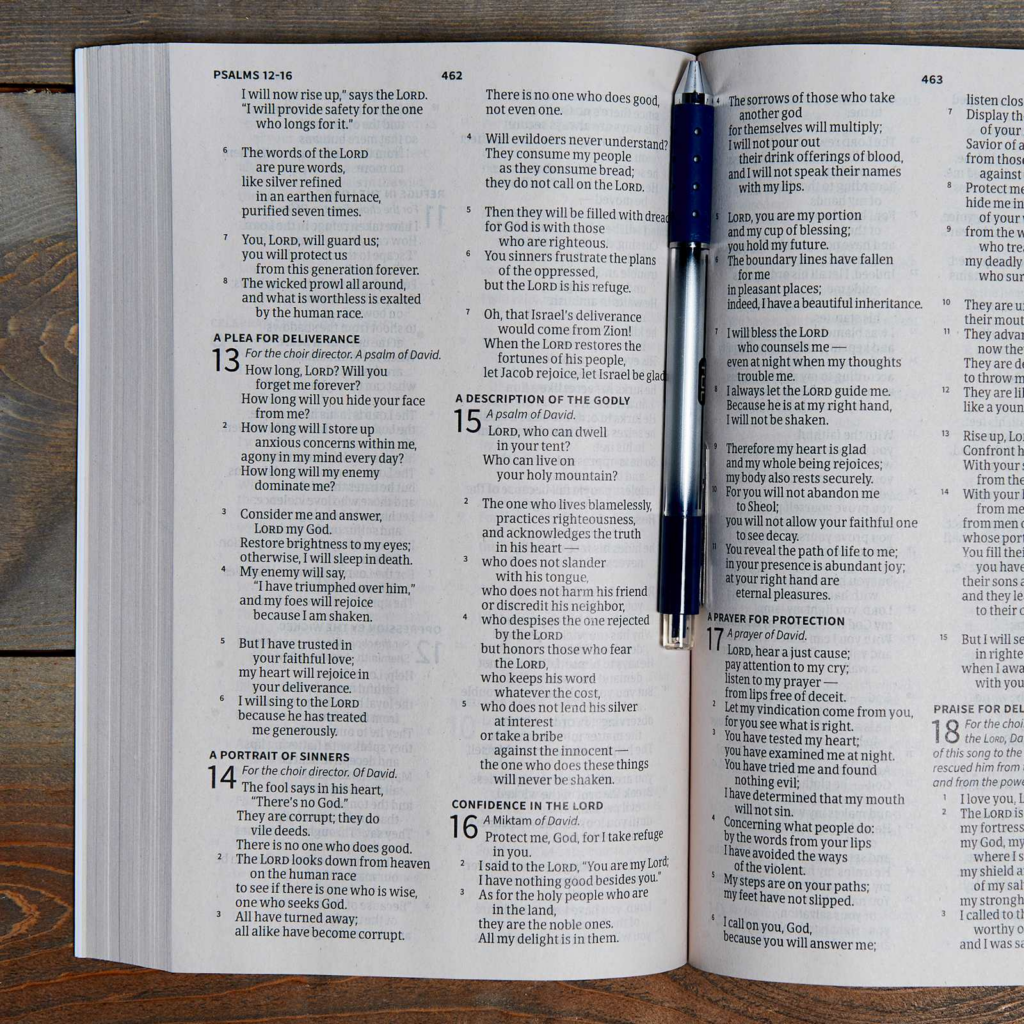 PSALMS 12-16
462
I will now rise up," says the LORD.
"I will provide safety for the one
who longs for it."
6 The words of the LORD
are pure words,
like silver refined
in an earthen furnace,
purified seven times.
7 You, LORD, will guard us;
you will protect us
from this generation forever.
8 The wicked prowl all around,
and what is worthless is exalted
by the human race.
A PLEA FOR DELIVERANCE
13 For the choir director. A psalm of David.
How long, LORD? Will you
forget me forever?
How long will you hide your face
from me?
2 How long will I store up
anxious concerns within me,
agony in my mind every day?
How long will my enemy
dominate me?
3 Consider me and answer,
LORD my God.
Restore brightness to my eyes;
otherwise, I will sleep in death.
4 My enemy will say,
"I have triumphed over him,"
and my foes will rejoice
because I am shaken.
5 But I have trusted in
your faithful love;
my heart will rejoice in
your deliverance.
6 I will sing to the LORD
because he has treated
me generously.
A PORTRAIT OF SINNERS
14 For the choir director. Of David.
The fool says in his heart,
"There's no God."
They are corrupt; they do
vile deeds.
There is no one who does good.
2 The LORD looks down from heaven
on the human race
to see if there is one who is wise,
one who seeks God.
3 All have turned away;
all alike have become corrupt.
There is no one who does good,
not even one.
4 Will evildoers never understand?
They consume my people
as they consume bread;
they do not call on the LORD.
5 Then they will be filled with dread
for God is with those
who are righteous.
6 You sinners frustrate the plans
of the oppressed,
but the LORD is his refuge.
7 Oh, that Israel's deliverance
would come from Zion!
When the LORD restores the
fortunes of his people,
let Jacob rejoice, let Israel be glad
A DESCRIPTION OF THE GODLY
15 A psalm of David.
LORD, who can dwell
in your tent?
Who can live on
your holy mountain?
2 The one who lives blamelessly,
practices righteousness,
and acknowledges the truth
in his heart —
3 who does not slander
with his tongue,
who does not harm his friend
or discredit his neighbor,
4 who despises the one rejected
by the LORD
but honors those who fear
the LORD,
who keeps his word
whatever the cost,
5 who does not lend his silver
at interest
or take a bribe
against the innocent —
the one who does these things
will never be shaken.
CONFIDENCE IN THE LORD
16 A Miktam of David.
Protect me, God, for I take refuge
in you.
2 I said to the LORD, "You are my Lord;
I have nothing good besides you."
3 As for the holy people who are
in the land,
they are the noble ones.
All my delight is in them.
463
4 The sorrows of those who take
another god
for themselves will multiply;
I will not pour out
their drink offerings of blood,
and I will not speak their names
with my lips.
5 LORD, you are my portion
and my cup of blessing;
you hold my future.
6 The boundary lines have fallen
for me
in pleasant places;
indeed, I have a beautiful inheritance.
7 I will bless the LORD
who counsels me —
even at night when my thoughts
trouble me.
8 I always let the LORD guide me.
Because he is at my right hand,
I will not be shaken.
9 Therefore my heart is glad
and my whole being rejoices;
my body also rests securely.
10 For you will not abandon me
to Sheol;
you will not allow your faithful one
to see decay.
11 You reveal the path of life to me;
in your presence is abundant joy;
at your right hand are
eternal pleasures.
A PRAYER FOR PROTECTION
17 A prayer of David.
LORD, hear a just cause;
pay attention to my cry;
listen to my prayer —
from lips free of deceit.
2 Let my vindication come from you,
for you see what is right.
3 You have tested my heart;
you have examined me at night.
You have tried me and found
nothing evil;
I have determined that my mouth
will not sin.
4 Concerning what people do:
by the words from your lips
I have avoided the ways
of the violent.
5 My steps are on your paths;
my feet have not slipped.
6 I call on you, God,
because you will answer me;
listen clos
7 Display th
of your
Savior of a
from thos
against
8 Protect me
hide me in
of your
9 from the w
who tre
my deadly
who sur
10 They are u
their mout
11 They advan
now the
They are de
to throw m
12 They are li
like a youn
13 Rise up, Lo
Confront h
With your s
from the
14 With your h
from me
from men o
whose port
You fill thei
you have
their sons a
and they le
to their c
15 But I will se
in righte
when I awa
with you
PRAISE FOR DEL
18 For the choi
the LORD, Da
of this song to the
rescued him from
and from the powe
1 I love you, L
2 The LORD is
my fortress
my God, my
where I s
my shield a
of my sal
my strongh
3 I called to th
worthy o
and I was sa